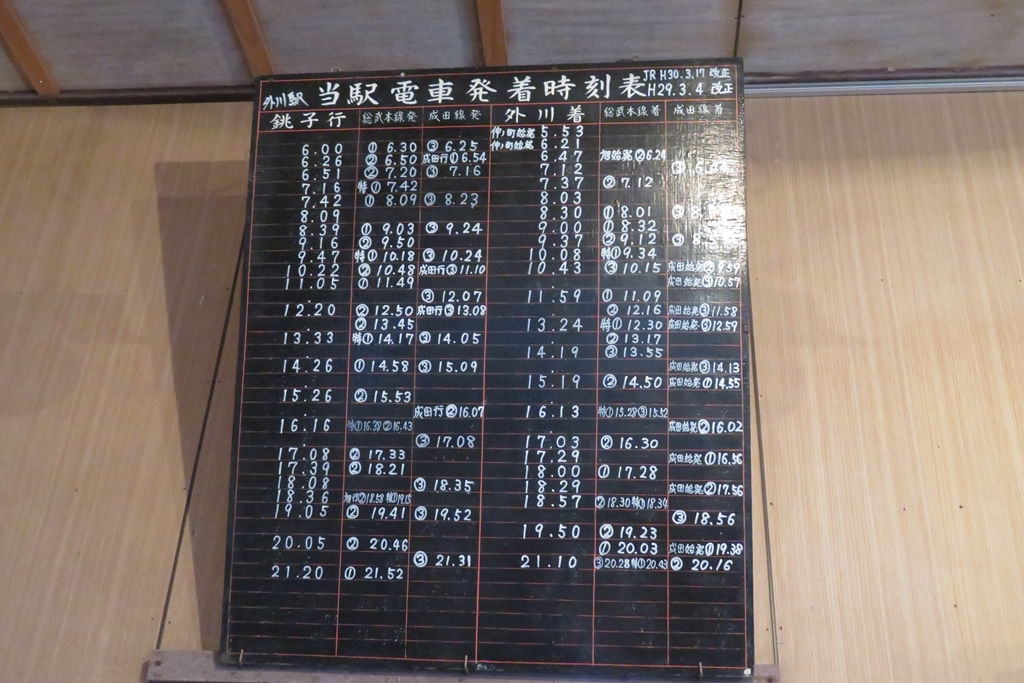 外川駅 当駅電車発着時刻表 JR H30.3.17 改正
H29.3.4 改正
銚子行 総武本線発 成田線発 外川着 総武本線着 成田線着
仲ノ町始発 5.53
6.00 ① 6.30 ③ 6.25 仲ノ町始発 6.21
6.26 ② 6.50 成田行① 6.54 6.47 旭始発② 6.24
6.51 ② 7.20 ③ 7.16 7.12 ③
7.16 特① 7.42 7.37 ② 7.12
7.42 ① 8.09 ③ 8.23 8.03
8.09 8.30 ① 8.01 ③
8.39 ① 9.03 ③ 9.24 9.00 ① 8.32
9.16 ② 9.50 9.37 ② 9.12 ③
9.47 特① 10.18 ③ 10.24 10.08 特① 9.34
10.22 ② 10.48 成田行③ 11.10 10.43 ③ 10.15 成田始発② 9.59
11.05 ① 11.49 成田始発③ 10.57
③ 12.07 11.59 ① 11.09
12.20 ② 12.50 成田行③ 13.08 ② 12.16 成田始発③ 11.58
② 13.45 13.24 特① 12.30 成田始発③ 12.59
13.33 特① 14.17 ③ 14.05 ② 13.17
14.19 ③ 13.55
14.26 ① 14.58 ③ 15.09 成田始発③ 14.13
15.19 ② 14.50 成田始発① 14.55
15.26 ② 15.53
成田行② 16.07 16.13 特① 15.28 ③ 15.52
16.16 特① 16.38 ② 16.43 成田始発② 16.02
③ 17.08 17.03 ② 16.30
17.08 ② 17.33 17.29 成田始発① 16.56
17.39 ② 18.21 18.00 ① 17.28
18.08 ③ 18.35 18.29 成田始発② 17.56
18.36 旭行② 18.58 特① 19.15 18.57 ② 18.30 特① 18.34
19.05 ② 19.41 ③ 19.52 ③ 18.56
19.50 ② 19.23
20.05 ② 20.46 ① 20.03 成田始発① 19.38
③ 21.31 21.10 ③ 20.28 特① 20.43 ② 20.16
21.20 ① 21.52